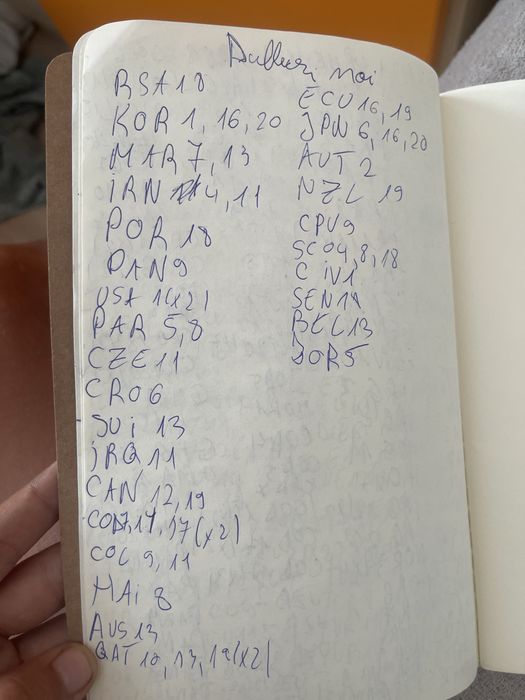 Dubluri noi
RSA 18
KOR 1, 16, 20
MAR 7, 13
iRN 4, 11
POR 18
PAN 9
USA 1(x2)
PAR 5,8
CZE 11
CRO 6
SUi 13
iRQ 11
CAN 12, 19
17(x2)
COL 9, 11
HAi 8
AUS 13
QAT 12, 13, 19(x2)
ECU 16, 19
JPN 6, 16, 20
AUT 2
NZL 19
CPV 9
SCO 4, 8, 18
CiV 1
SEN
BEL 13
JOR 5